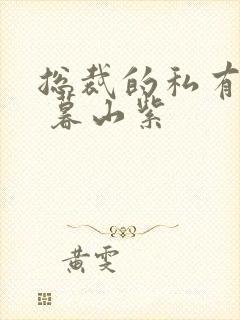 总裁的私有
暮山紫
黄雯